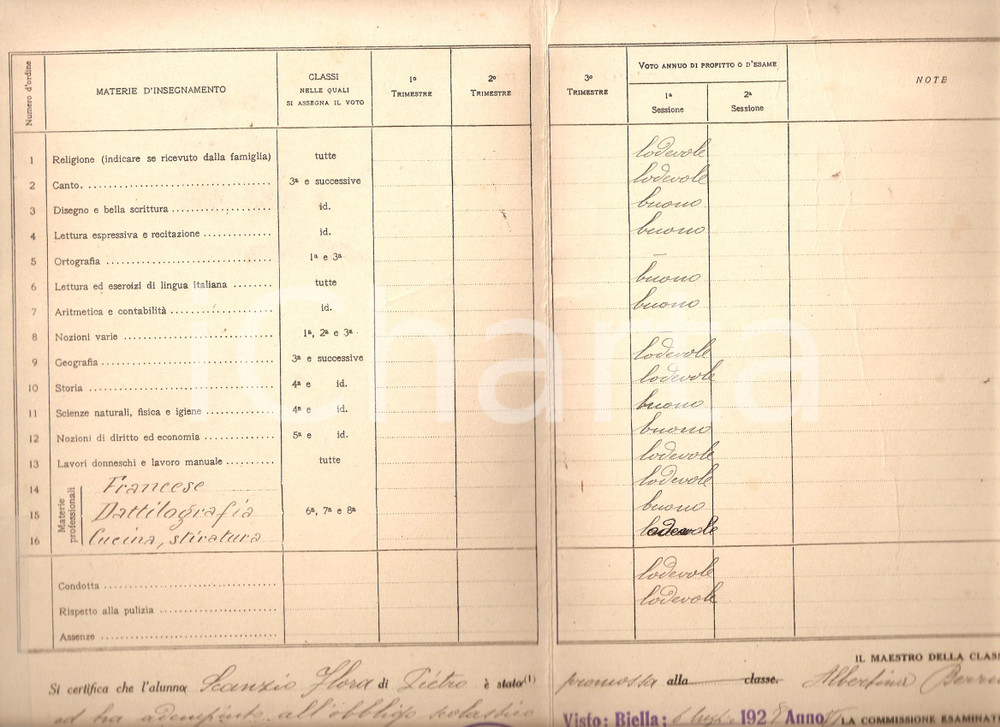 Numero d'ordine
MATERIE D'INSEGNAMENTO
CLASSI
NELLE QUALI
SI ASSEGNA IL VOTO
1º
TRIMESTRE
2º
TRIMESTRE
3º
TRIMESTRE
VOTO ANNUO DI PROFITTO O D'ESAME
1ª
Sessione
2ª
Sessione
NOTE
1 Religione (indicare se ricevuto dalla famiglia) tutte lodevole
2 Canto. 3ª e successive lodevole
3 Disegno e bella scrittura id. buono
4 Lettura espressiva e recitazione id. buono
5 Ortografia 1ª e 3ª –
6 Lettura ed esercizi di lingua italiana tutte buono
7 Aritmetica e contabilità id. buono
8 Nozioni varie 1ª, 2ª e 3ª –
9 Geografia 3ª e successive lodevole
10 Storia 4ª e id. lodevole
11 Scienze naturali, fisica e igiene 4ª e id. buono
12 Nozioni di diritto ed economia 5ª e id. buono
13 Lavori donneschi e lavoro manuale tutte lodevole
Materie professionali
14 Francese lodevole
15 Dattilografia 6ª, 7ª e 8ª buono
16 Cucina, stiratura lodevole
Condotta lodevole
Rispetto alla pulizia lodevole
Assenze
IL MAESTRO DELLA CLAS
Si certifica che l'alunna Scanzio Flora di Pietro è stata (1) promossa alla classe. Albertina
ed ha adempiuto all'obbligo scolastico
Visto: Biella: 1928 Anno VI LA COMMISSIONE ESAMINAT
iCharta